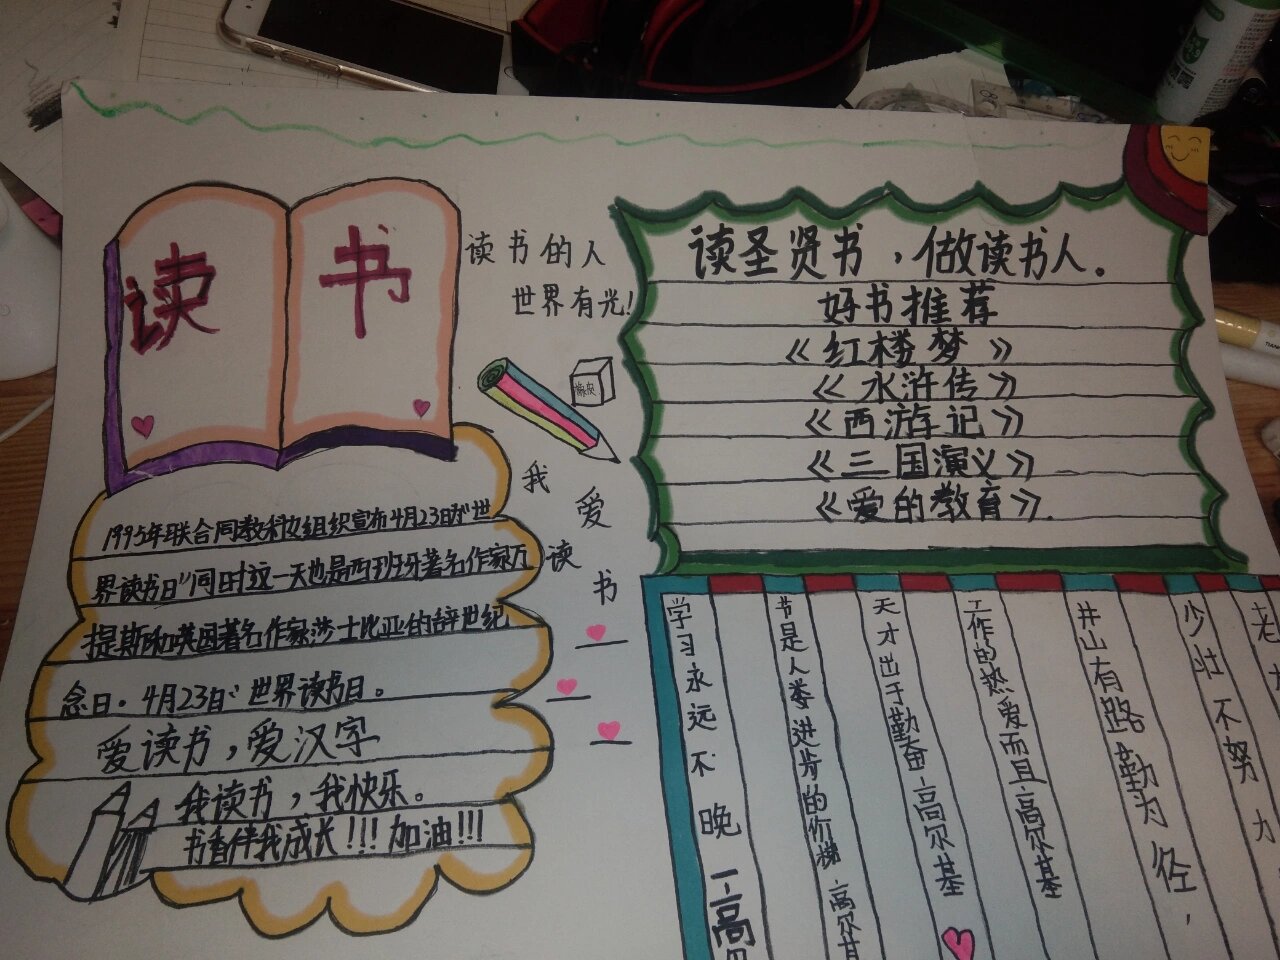 读书
读书的人
世界有光!
橡皮
我爱读书
1995年联合国教科文组织宣布4月23日为"世
界读书日"同时这一天也是西班牙著名作家万
提斯和英国著名作家莎士比亚的辞世纪
念日。4月23日"世界读书日。
爱读书，爱汉字
我读书，我快乐。
书香伴我成长!!!加油!!!
读圣贤书，做读书人。
好书推荐
《红楼梦》
《水浒传》
《西游记》
《三国演义》
《爱的教育》.
学习永远不晚—高
书是人类进步的阶梯.高尔基
天才出于勤奋.高尔基
工作的热爱而且高尔基
井山有路勤为径，
少壮不努力
老大